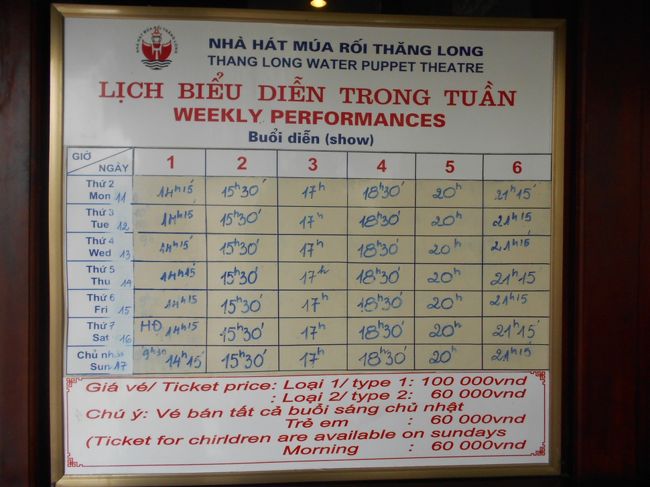 NHÀ HÁT MÚA RỐI THĂNG LONG
NHÀ HÁT MÚA RỐI THĂNG LONG
THANG LONG WATER PUPPET THEATRE
LỊCH BIỂU DIỄN TRONG TUẦN
WEEKLY PERFORMANCES
Buổi diễn (show)
GIỜ NGÀY 1 2 3 4 5 6
Thứ 2
Mon 11 14h15 15h30' 17h 18h30' 20h 21h15'
Thứ 3
Tue 12 14h15 15h30' 17h 18h30' 20h 21h15'
Thứ 4
Wed 13 14h15 15h30' 17h 18h30' 20h 21h15'
Thứ 5
Thu 14 14h15' 15h30' 17h 18h30' 20h 21h15
Thứ 6
Fri 15 14h15 15h30' 17h 18h30' 20h 21h15'
Thứ 7
Sat 16 HĐ 14h15 15h30' 17h 18h30' 20h 21h15'
Chủ nhật
Sun 17 9h30 14h15' 15h30' 17h 18h30' 20h 21h15'
Giá vé/ Ticket price: Loại 1/ type 1: 100 000vnd
: Loại 2/ type 2: 60 000vnd
Chú ý: Vé bán tất cả buổi sáng chủ nhật
Trẻ em : 60 000vnd
(Ticket for chirldren are available on sundays
Morning : 60 000vnd